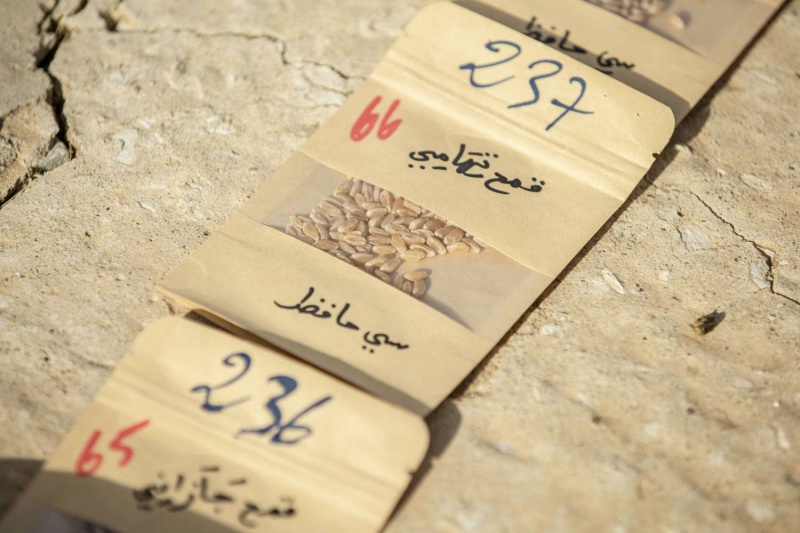 سي حافظ
237
66
قمح تهامي
سي حافظ
236
65
قمح جَازَاني